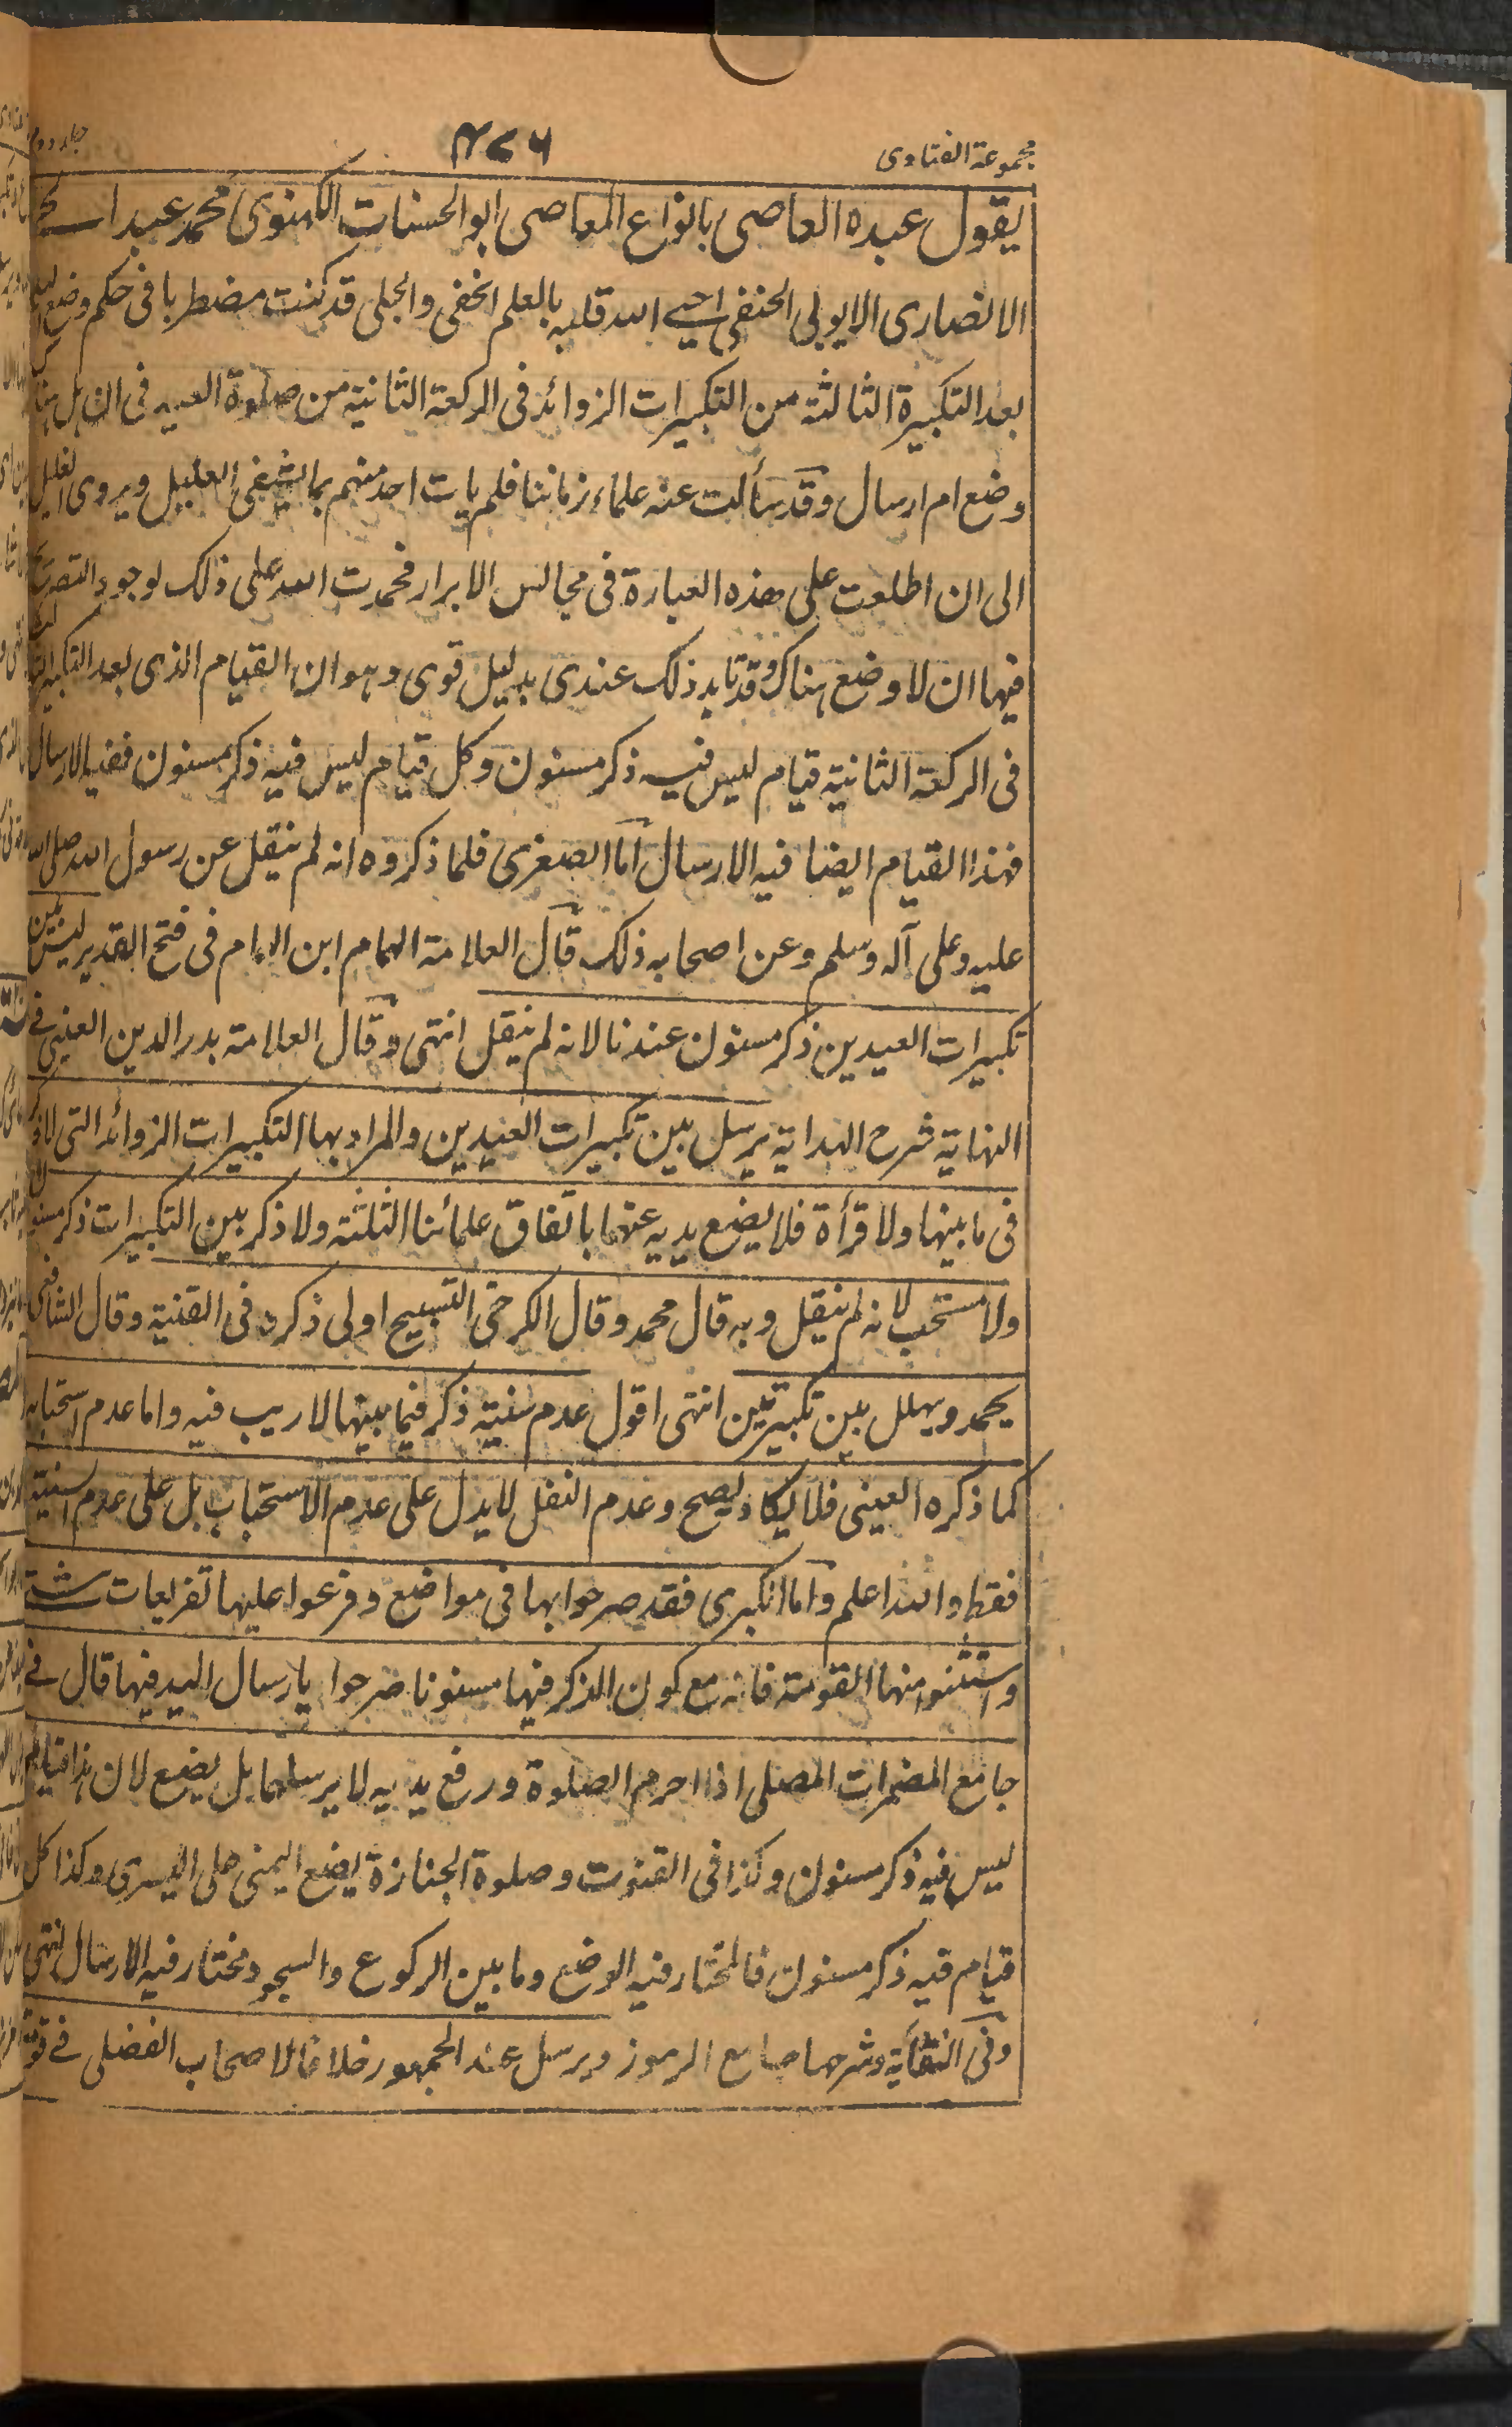 مجموعة الفتاوى
۴۷۶
جلد دوم
يقول عبده العاصى بانواع المعاصى ابو الحسنات اللكهنوى محمد عبد الحى
الانصارى الايوبى الحنفى احيى الله قلبه بالعلم الخفى والجلى قد كنت مضطربا فى حكم وضع اليد
بعد التكبيرة الثالثة من التكبيرات الزوائد فى الركعة الثانية من صلوة العيد فى ان هل هنا
وضع ام ارسال وقد سألت عنه علماء زماننا فلم يات احد منهم بما يشفى العليل ويروى الغليل
الى ان اطلعت على هذه العبارة فى مجالس الابرار فحمدت الله على ذلك لوجود التصريح
فيها ان لا وضع هناك وقد تايد ذلك عندى بدليل قوى وهو ان القيام الذى بعد التكبيرات
فى الركعة الثانية قيام ليس فيه ذكر مسنون وكل قيام ليس فيه ذكر مسنون ففيه الارسال
فهذا القيام ايضا فيه الارسال اما الصغرى فلما ذكروه انه لم ينقل عن رسول الله صلى الله
عليه وعلى آله وسلم وعن اصحابه ذلك قال العلامة الهمام ابن الهمام فى فتح القدير ليس بين
تكبيرات العيدين ذكر مسنون عندنا لانه لم ينقل انتهى وقال العلامة بدر الدين العينى فى
النهاية شرح الهداية يرسل بين تكبيرات العيدين والمراد بها التكبيرات الزوائد التى لا ذكر
فى ما بينها ولا قرأة فلا يضع يديه عنها باتفاق علمائنا الثلثة ولا ذكر بين التكبيرات ذكر مسنون
ولا مستحب لانه لم ينقل وبه قال محمد وقال الكرخى التسبيح اولى ذكره فى القنية وقال الشافعى
يحمد ويهلل بين تكبيرتين انتهى اقول عدم سنية ذكر فيما بينها لا ريب فيه واما عدم استحبابه
كما ذكره العينى فلا يكاد يصح وعدم النقل لا يدل على عدم الاستحباب بل على عدم السنية
فقط والله اعلم واما الكبرى فقد صرحوا بها فى مواضع وفرعوا عليها تفريعات شتى
واستثنوا منها القومة فانه مع كون الذكر فيها مسنونا صرحوا بارسال اليد فيها قال فى
جامع المضمرات المصلى اذا احرم الصلوة ورفع يديه لا يرسلهما بل يضع لان هذا قيام
ليس فيه ذكر مسنون وكذا فى القنوت وصلوة الجنازة يضع اليمنى على اليسرى وكذا كل
قيام فيه ذكر مسنون فالمختار فيه الوضع وما بين الركوع والسجود مختار فيه الارسال انتهى
وفى النقاية وشرحها جامع الرموز ويرسل عند الجمهور خلافا لاصحاب الفضلى فى قومة